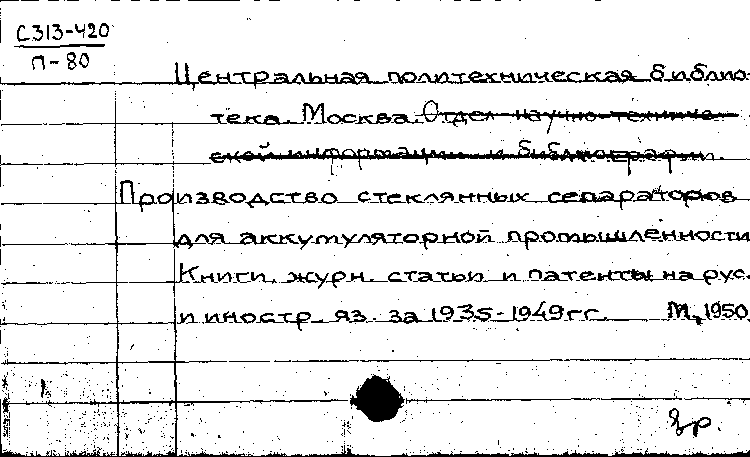 С313-420
П-80
Центральная политехническая библио-
тека. Москва. Отдел научно-техниче-
ской информации и библиографии.
Производство стеклянных сепараторов
для аккумуляторной промышленности
Книги, журн. статьи и патенты на рус.
и иностр. яз. за 1935-1949 гг. М., 1950.